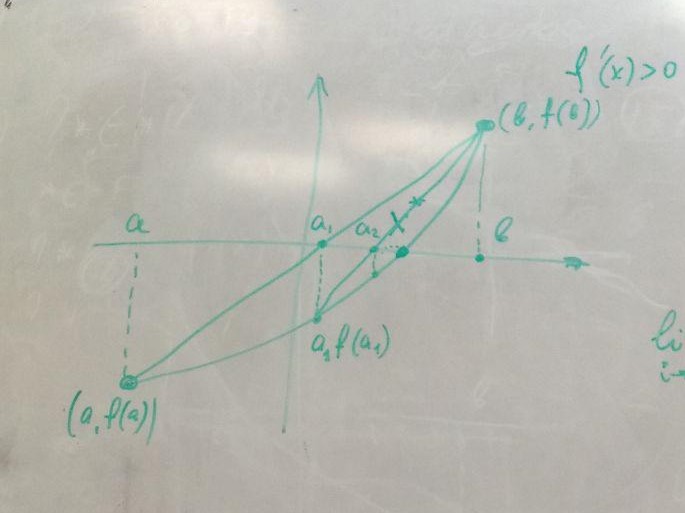 f'(x)>0
(b, f(b))
a
a₁
a₂
x*
b
a₁f(a₁)
(a, f(a))
li
i→